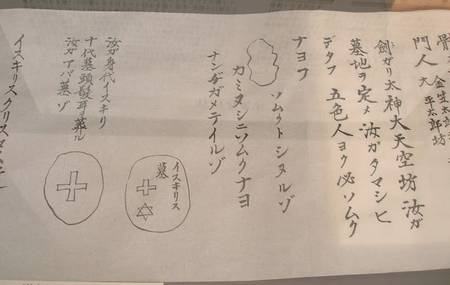 門人 大平太郎坊
劍ガリ太神大天空坊 汝ガ
墓地ヲ定メ汝ガタマシヒ
デタフ 五色人ヨク必ソムク
ナヨフ
ソムクトシヌルゾ
ナンヂガメテイルゾ
イスキリス
墓
汝ガ身代イスキリ
十代墓頭髪耳葬ル
汝ガアバ墓ゾ
イスキリスクリス